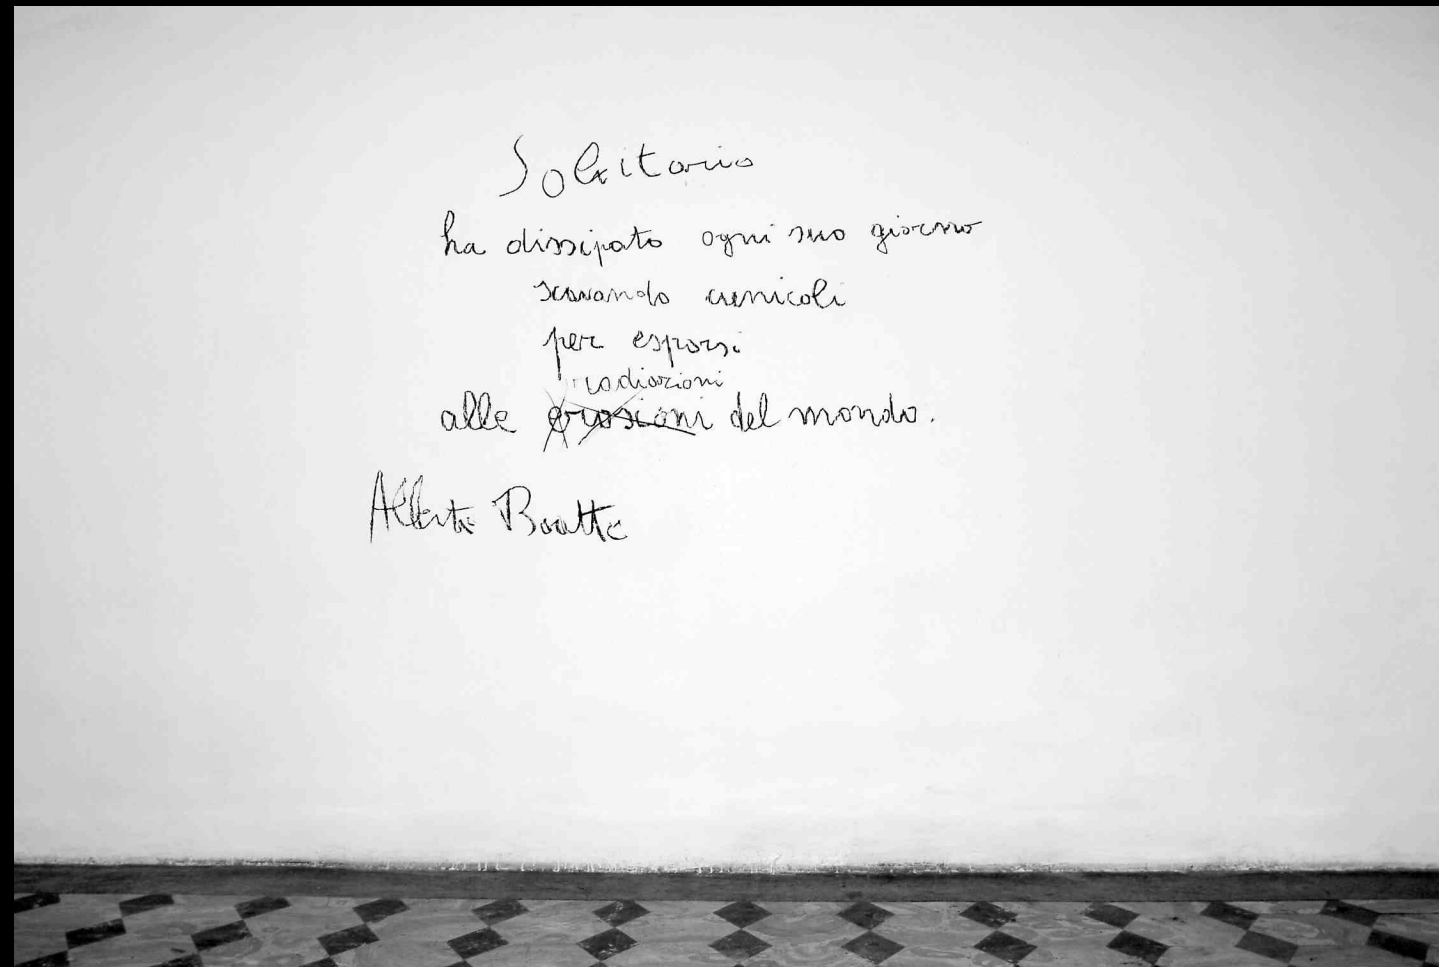 Solitario
ha dissipato ogni suo giorno
scavando cunicoli
per esporsi
radiazioni
alle erosioni del mondo.
Alberto Boatto